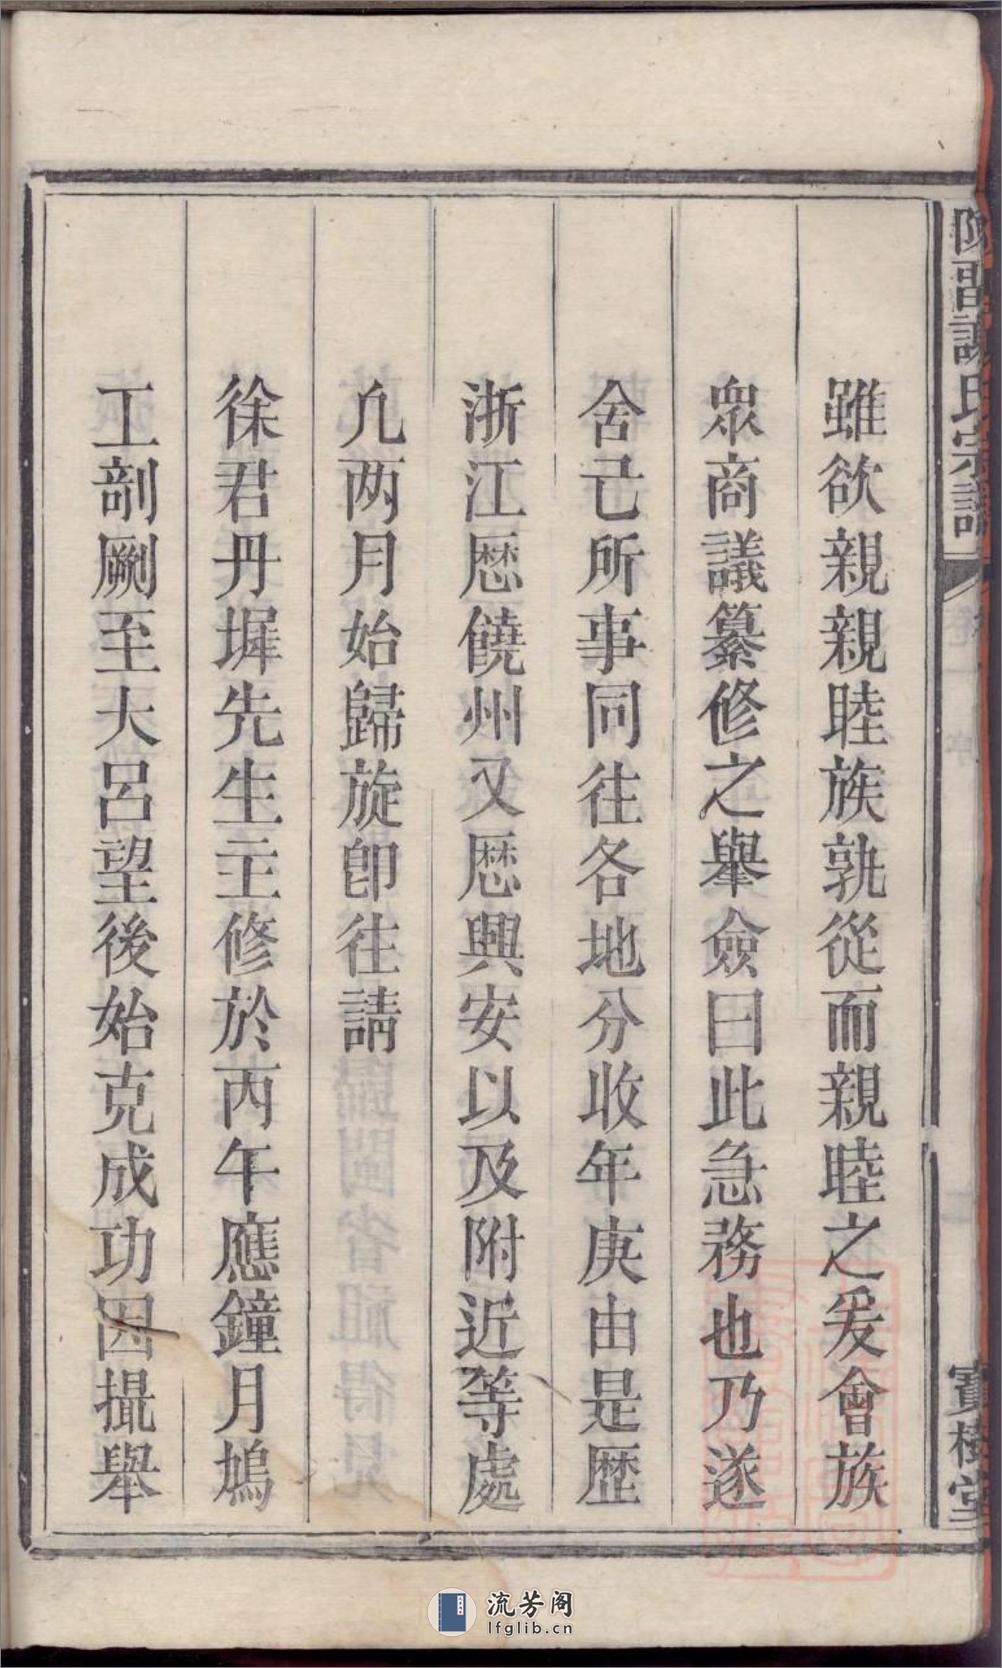 陳留謝氏宗譜
寶樹堂
雖欲親親睦族孰從而親睦之爰會族
衆商議纂修之舉僉曰此急務也乃遂
舍己所事同往各地分收年庚由是歷
浙江歷饒州又歷興安以及附近等處
凢两月始歸旋卽往請
徐君丹墀先生主修於丙午應鐘月鳩
工剞劂至大呂望後始克成功因撮舉
流芳阁
lfglib.cn